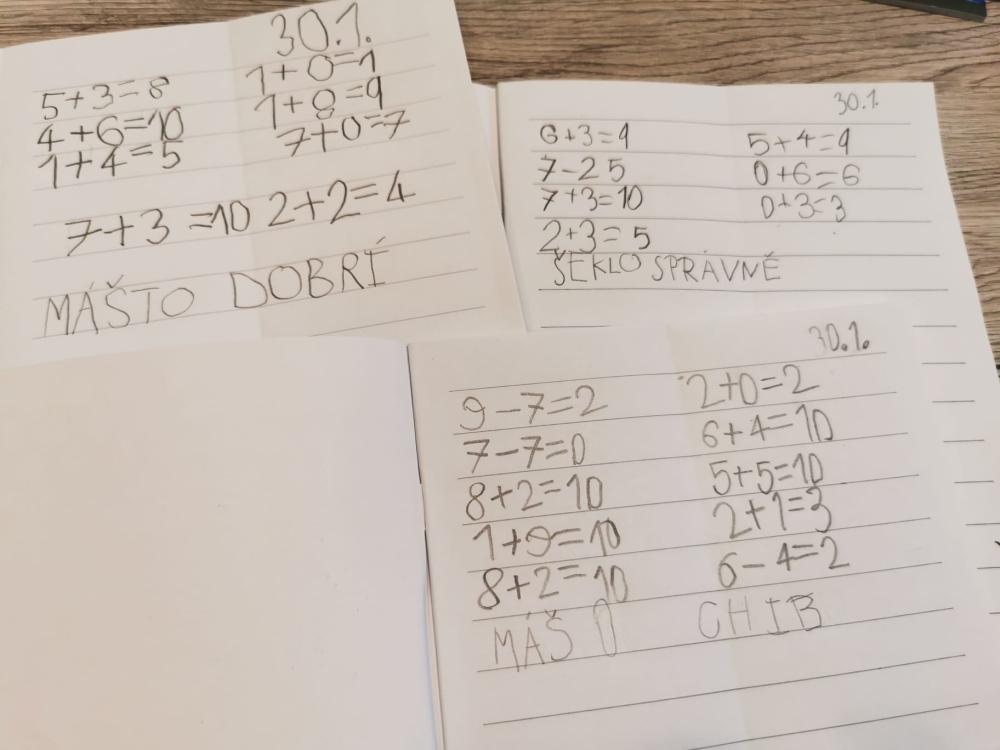 30.1.
5+3=8 1+0=1
4+6=10 1+8=9
1+4=5 7+0=7
7+3=10 2+2=4
MÁŠTO DOBRÍ
30.1.
6+3=9 5+4=9
7-2 5 0+6=6
7+3=10 0+3=3
2+3=5
ŠEKLO SPRÁVNĚ
30.1.
9-7=2 2+0=2
7-7=0 6+4=10
8+2=10 5+5=10
1+9=10 2+1=3
8+2=10 6-4=2
MÁŠ 0 CHIB